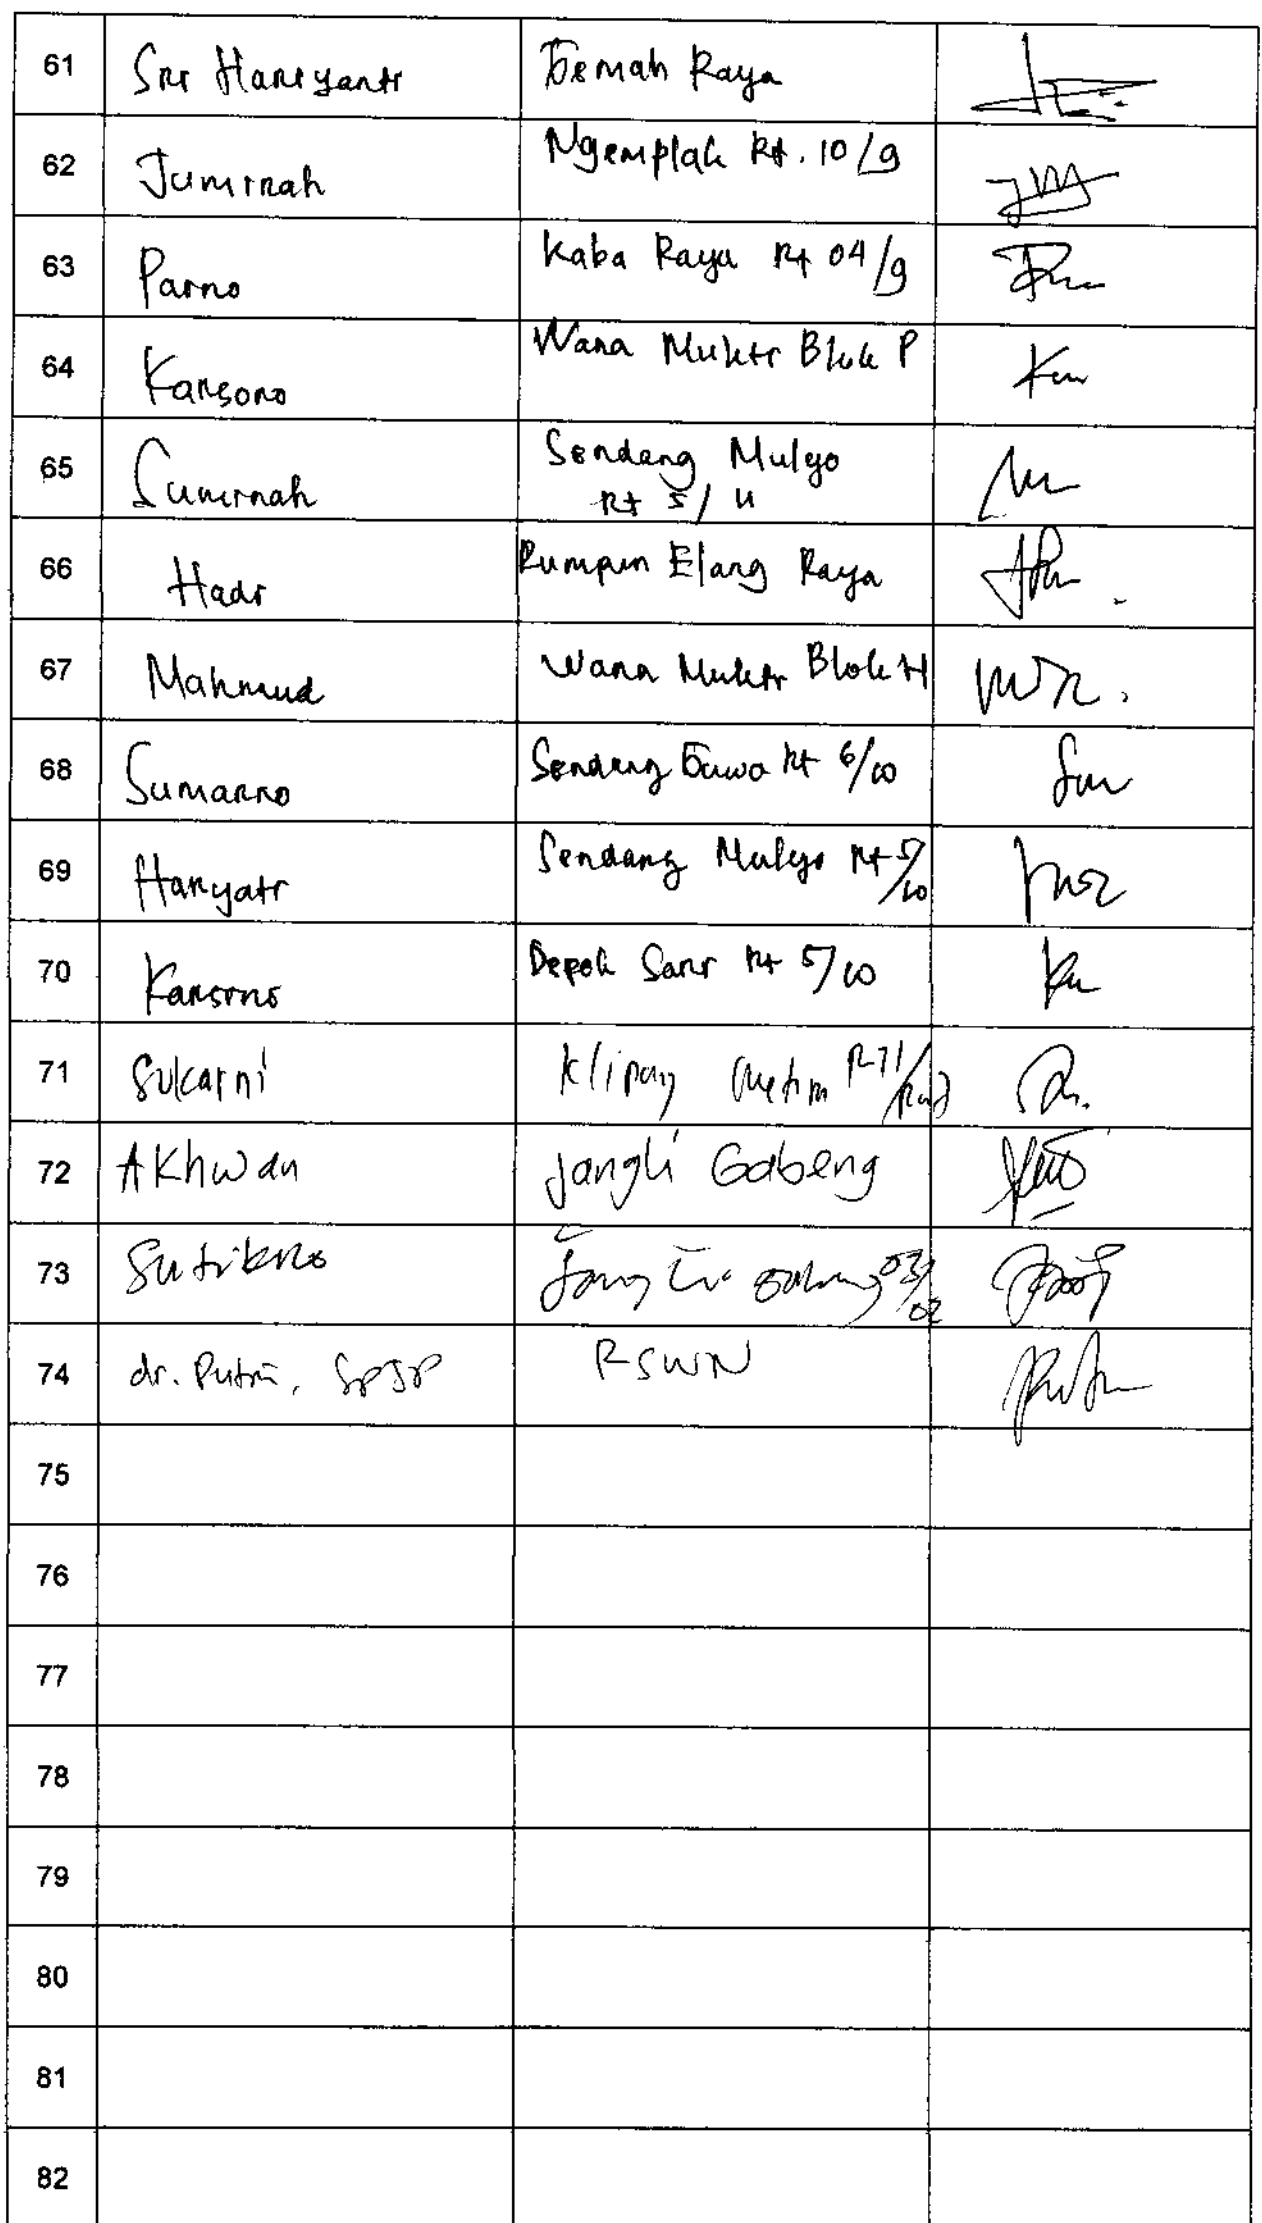 61 Sri Hariyanti Gemah Raya
62 Juminah Ngemplak Rt. 10/9
63 Parno Kaba Raya Rt 04/9
64 Karsono Wana Mukti Blok P
65 Suminah Sendang Mulyo
Rt 5/
66 Hadi Rumpun Elang Raya
67 Mahmud Wana Mukti Blok H
68 Sumarno Sendang Guwo Rt 6/10
69 Haryati Sendang Mulyo Rt 5/10
70 Karsono Depok Sari Rt 5/10
71 Sukarni Klipang
72 AKhwan Jangli Gabeng
73 Sutikno 03/02
74 dr. Putri, SpJP RSWN
75
76
77
78
79
80
81
82